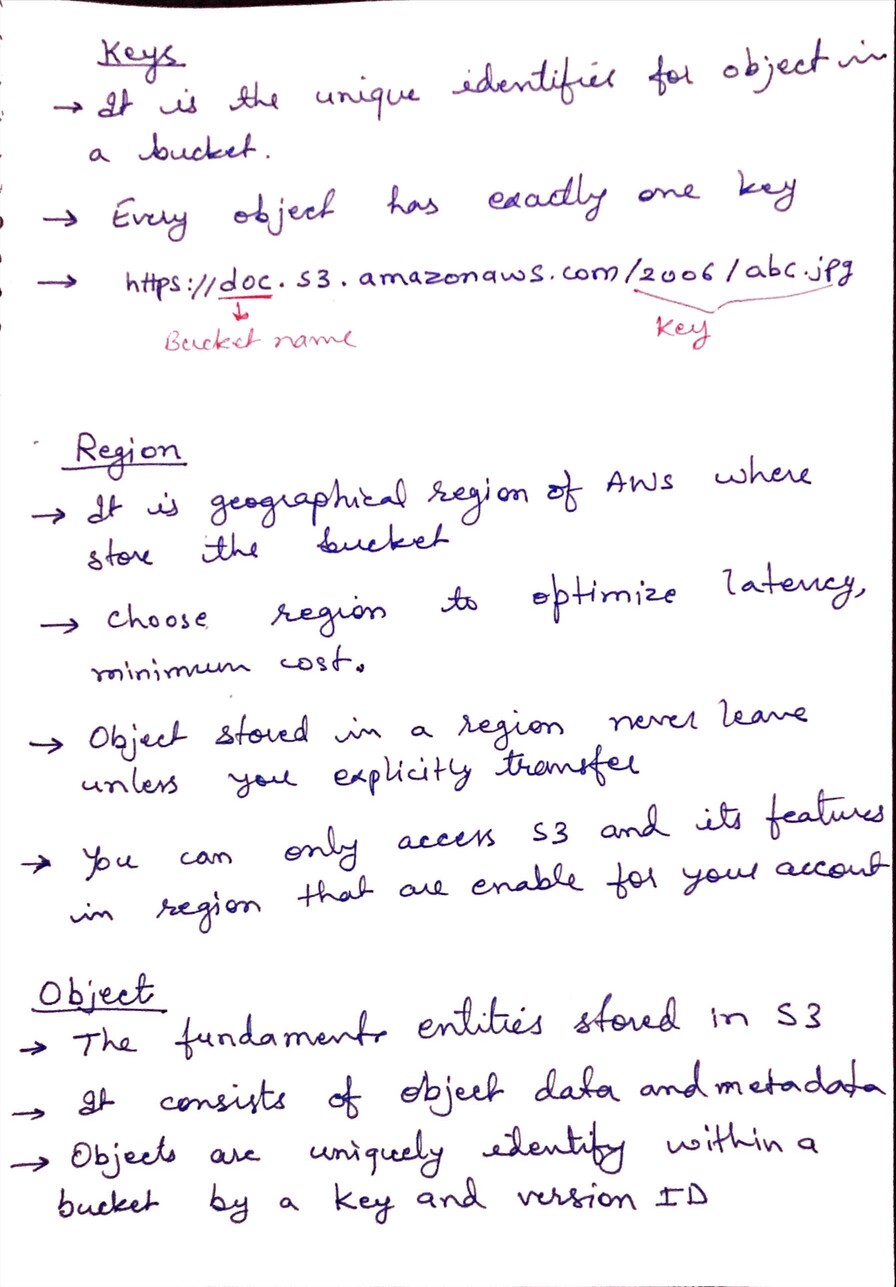 Keys
→ It is the unique identifier for object in
a bucket.
→ Every object has exactly one key
→ https://doc.s3.amazonaws.com/2006/abc.jpg
Bucket name
Key
Region
→ It is geographical region of AWS where
store the bucket
→ choose region to optimize latency,
minimum cost.
→ Object stored in a region never leave
unless you explicity transfer
→ You can only access S3 and its features
in region that are enable for your accout
Object
→ The fundament entities stored in S3
→ It consists of object data and metadata
→ Objects are uniquely identify within a
bucket by a key and version ID